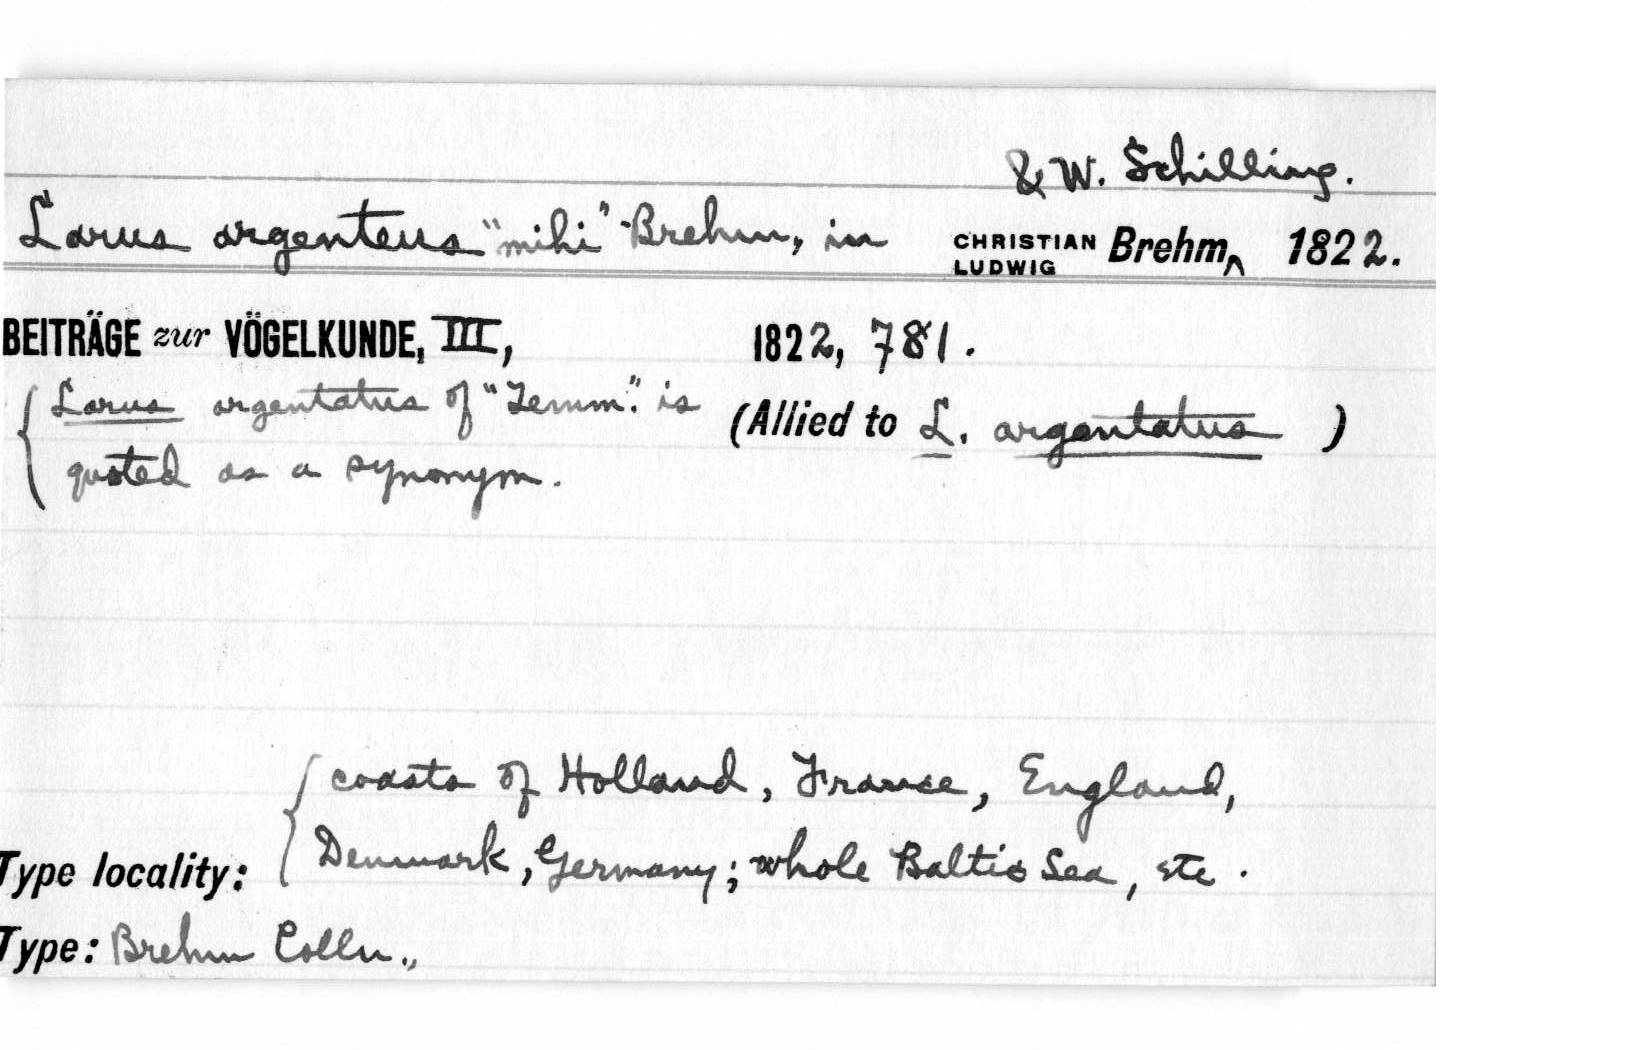 & W. Schilling.
Larus argenteus "mihi" Brehm, in CHRISTIAN LUDWIG Brehm, 1822.
BEITRÄGE zur VÖGELKUNDE, III, 1822, 781.
Larus argentatus of "Temm." is
quoted as a synonym.
(Allied to L. argentatus )
coasts of Holland, France, England,
Type locality: Denmark, Germany; whole Baltic Sea, etc.
Type: Brehm Colln.,